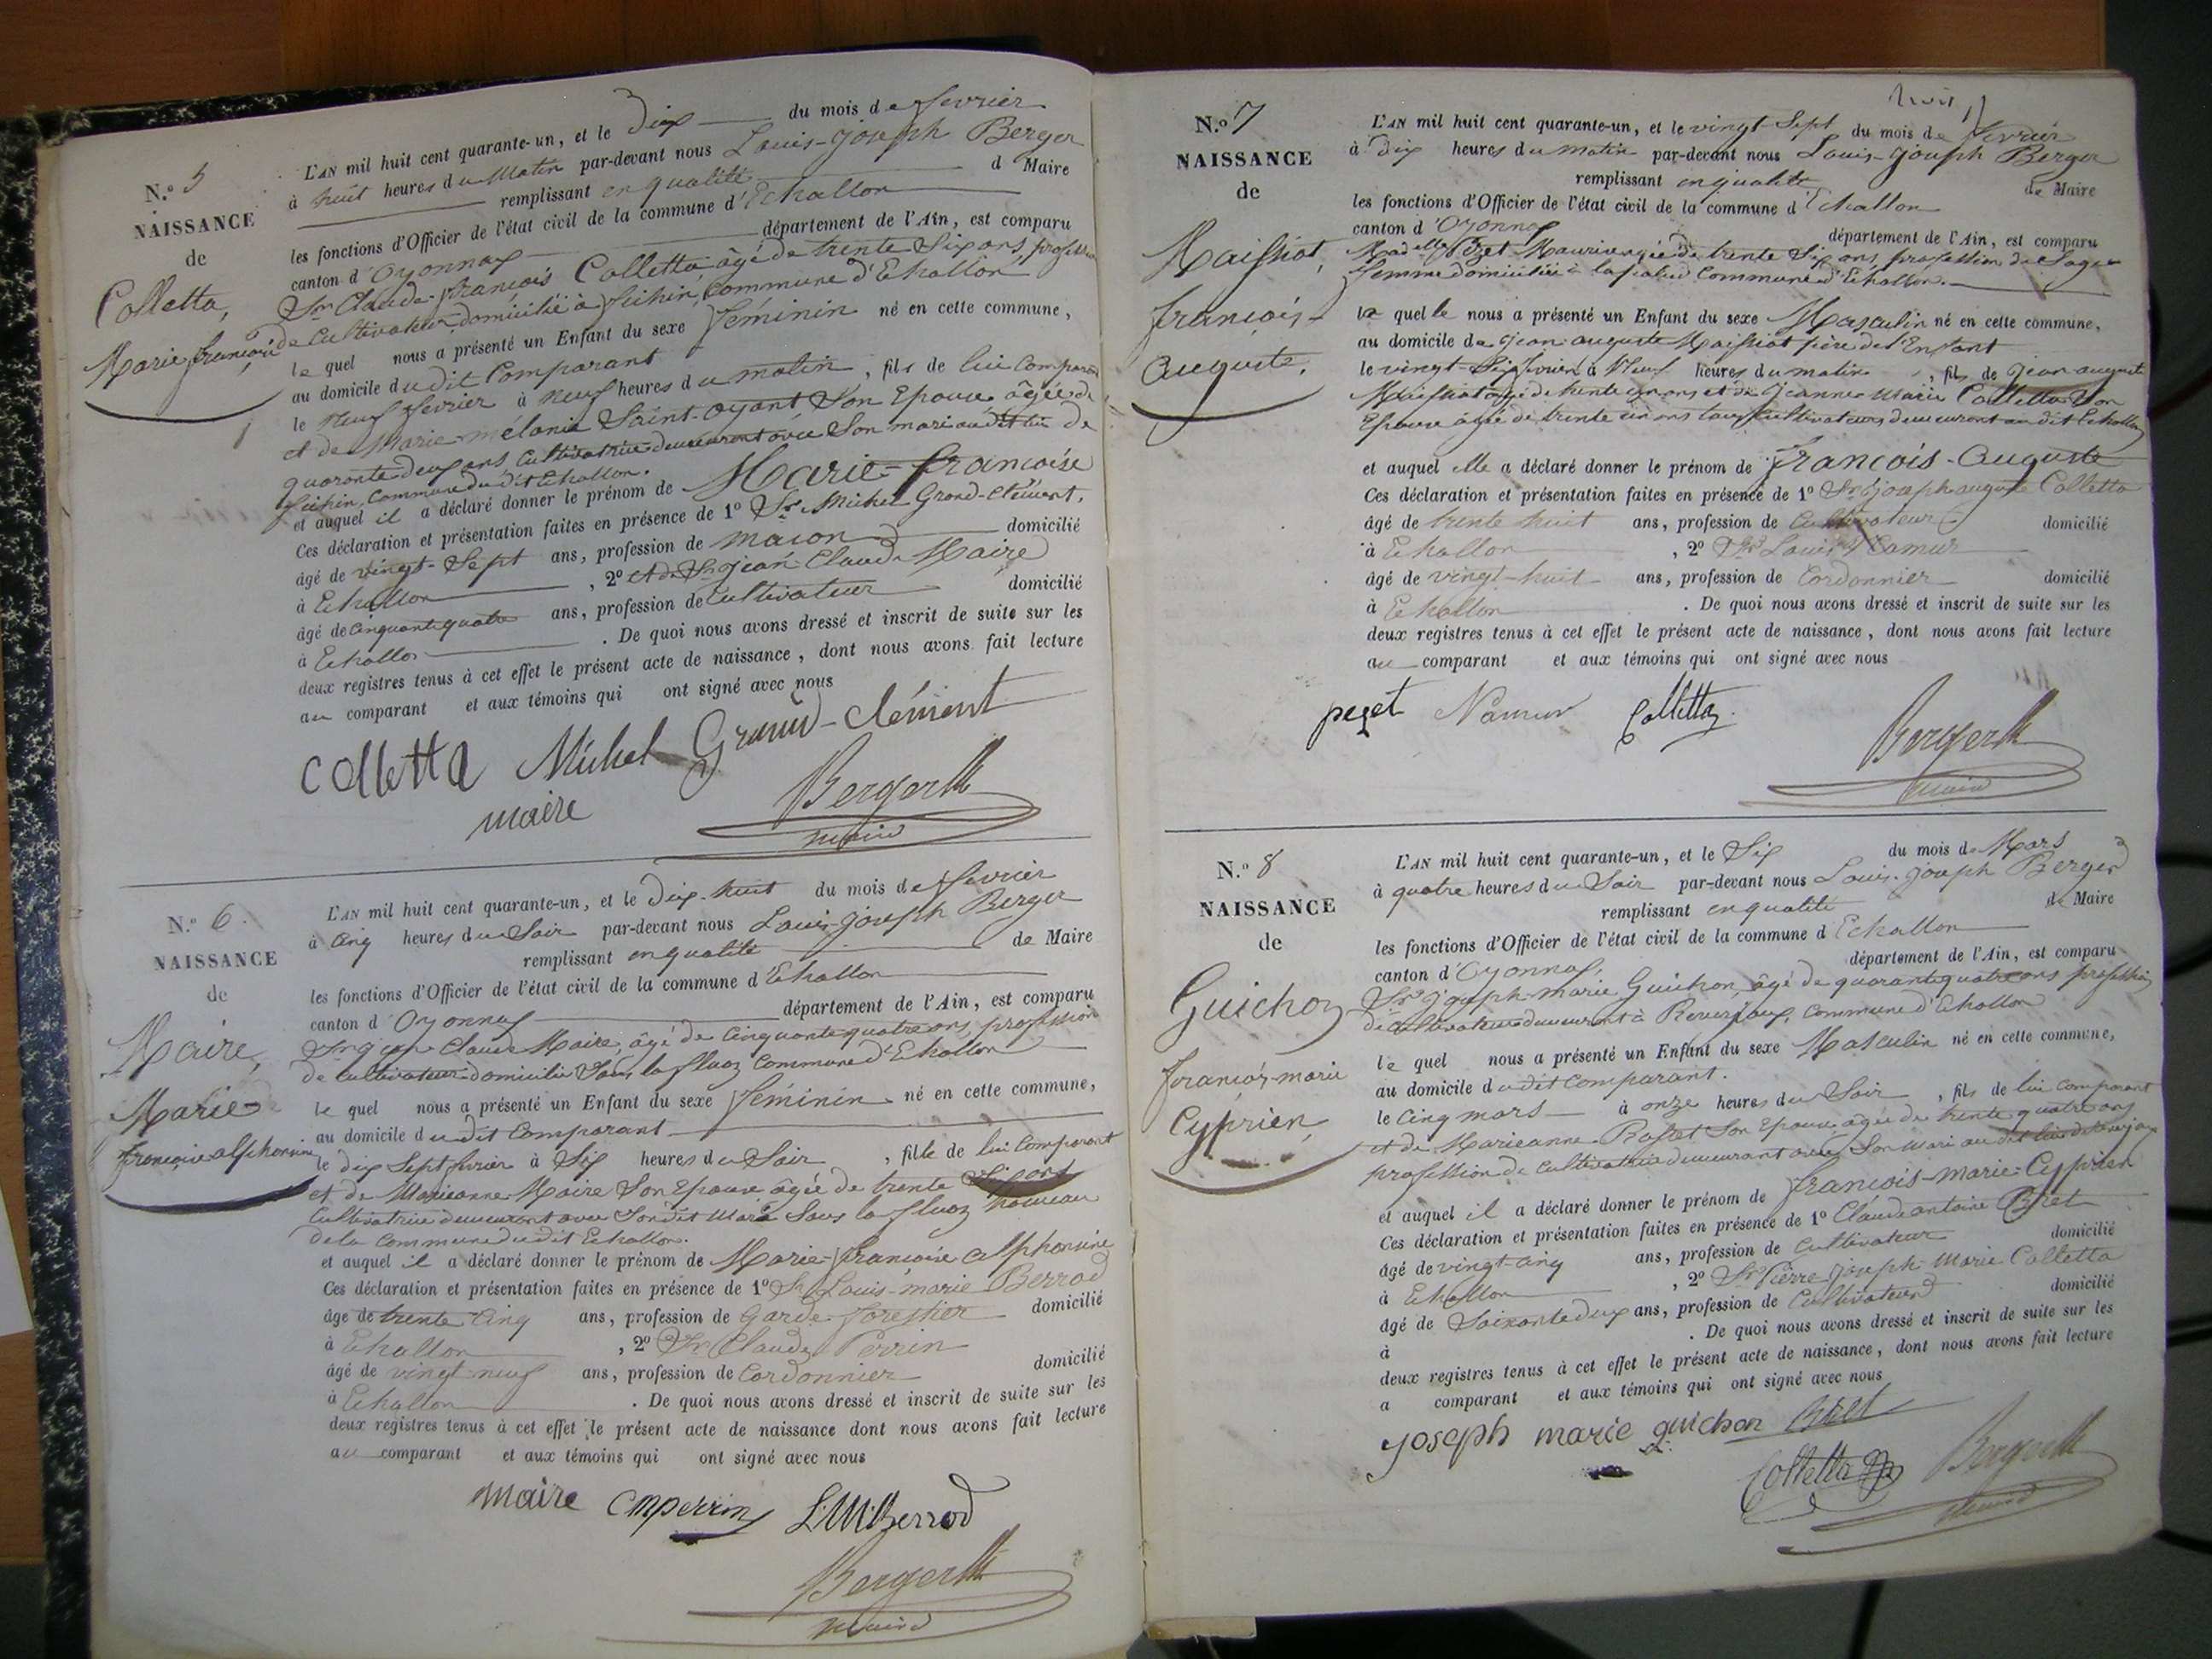 N.º 5
NAISSANCE
de
Colletta,
Marie françoise
L'AN mil huit cent quarante-un, et le Dix du mois de fevrier
à huit heures du Matin par-devant nous Louis-joseph Berger
remplissant en qualité d Maire
les fonctions d'Officier de l'état civil de la commune d'Echallon
canton d'Oyonnax département de l'Ain, est comparu
Sr Claude-françois Colletta âgé de trente Six ans, profession
de Cultivateur, domicilié à commune d'Echallon
le quel nous a présenté un Enfant du sexe féminin né en cette commune,
au domicile du dit Comparant
le neuf fevrier à neuf heures du matin, fils de lui Comparant
et de Marie-mélanie Saint-oyant Son Epouse âgée de
quarante deux ans Cultivatrice demeurant avec Son mari au dit lieu de
commune du dit Echallon.
et auquel il a déclaré donner le prénom de Marie-françoise
Ces déclaration et présentation faites en présence de 1º Sr Michel Grand-clément,
âgé de vingt-Sept ans, profession de macon domicilié
à Echallon, 2º et de Sr jean Claude Maire
âgé de cinquante quatre ans, profession de cultivateur domicilié
à Echallon. De quoi nous avons dressé et inscrit de suite sur les
deux registres tenus à cet effet le présent acte de naissance, dont nous avons fait lecture
au comparant et aux témoins qui ont signé avec nous
Colletta Michel Grand-clément
maire Berger
maire
N.º 6
NAISSANCE
de
Maire,
Marie-
françoise alphonsine
L'AN mil huit cent quarante-un, et le Dix-huit du mois de fevrier
à cinq heures du Soir par-devant nous Louis-joseph Berger
remplissant en qualité de Maire
les fonctions d'Officier de l'état civil de la commune d'Echallon
canton d'Oyonnax département de l'Ain, est comparu
Sr jean Claude Maire, âgé de cinquante quatre ans, profession
de cultivateur domicilié Sous la fluaz commune d'Echallon
le quel nous a présenté un Enfant du sexe féminin né en cette commune,
au domicile du dit Comparant
le dix Sept fevrier à Six heures du Soir, fille de lui Comparant
et de Marieanne Maire Son Epouse âgée de trente Six ans
Cultivatrice demeurant avec Son dit Mari Sous la fluaz hameau
de la commune du dit Echallon.
et auquel il a déclaré donner le prénom de Marie-françoise alphonsine
Ces déclaration et présentation faites en présence de 1º Sr Louis-marie Berrod
âgé de trente cinq ans, profession de Garde forestier domicilié
à Echallon, 2º Sr Claude Perrin
âgé de vingt-neuf ans, profession de Cordonnier domicilié
à Echallon. De quoi nous avons dressé et inscrit de suite sur les
deux registres tenus à cet effet le présent acte de naissance dont nous avons fait lecture
au comparant et aux témoins qui ont signé avec nous
maire CMperrin L.M.Berrod
Berger
maire
N.º 7
NAISSANCE
de
Maissiat,
françois-
auguste,
L'AN mil huit cent quarante-un, et le vingt-Sept du mois de fevrier
à dix heures du matin par-devant nous Louis-joseph Berger
remplissant en qualité de Maire
les fonctions d'Officier de l'état civil de la commune d'Echallon
canton d'Oyonnax département de l'Ain, est comparu
âgée de trente Six ans, profession de Sage
femme domiciliée à commune d'Echallon.
le quelle nous a présenté un Enfant du sexe Masculin né en cette commune,
au domicile de jean-auguste Maissiat père de l'Enfant
le vingt-Six fevrier à Neuf heures du matin, fils de jean auguste
Maissiat âgé de trente un ans et de jeanne Marie Colletta Son
Epouse âgée de trente un ans tous cultivateurs demeurant au dit Echallon
et auquel elle a déclaré donner le prénom de françois-auguste
Ces déclaration et présentation faites en présence de 1º Sr joseph auguste Colletta
âgé de trente huit ans, profession de Cultivateur domicilié
à Echallon, 2º Sr Louis Namur
âgé de vingt-huit ans, profession de Cordonnier domicilié
à Echallon. De quoi nous avons dressé et inscrit de suite sur les
deux registres tenus à cet effet le présent acte de naissance, dont nous avons fait lecture
au comparant et aux témoins qui ont signé avec nous
pezet Namur Colletta
Berger
maire
N.º 8
NAISSANCE
de
Guichon
françois-marie
Cyprien,
L'AN mil huit cent quarante-un, et le Six du mois de Mars
à quatre heures du Soir par-devant nous Louis-joseph Berger
remplissant en qualité de Maire
les fonctions d'Officier de l'état civil de la commune d Echallon
canton d'Oyonnax, département de l'Ain, est comparu
Sr joseph-marie Guichon, âgé de quarante quatre ans profession
de cultivateur demeurant à commune d'Echallon
le quel nous a présenté un Enfant du sexe Masculin né en cette commune,
au domicile du dit comparant.
le cinq mars à onze heures du Soir, fils de lui comparant
et de Marieanne Son Epouse âgée de trente quatre ans
profession de Cultivatrice demeurant avec Son Mari au dit lieu
et auquel il a déclaré donner le prénom de françois-marie-Cyprien
Ces déclaration et présentation faites en présence de 1º Claude antoine
âgé de vingt-cinq ans, profession de cultivateur domicilié
à Echallon, 2º Sr Pierre joseph-Marie Colletta
âgé de Soixante deux ans, profession de Cultivateur domicilié
à . De quoi nous avons dressé et inscrit de suite sur les
deux registres tenus à cet effet le présent acte de naissance, dont nous avons fait lecture
a comparant et aux témoins qui ont signé avec nous
joseph marie guichon
Colletta Berger
maire